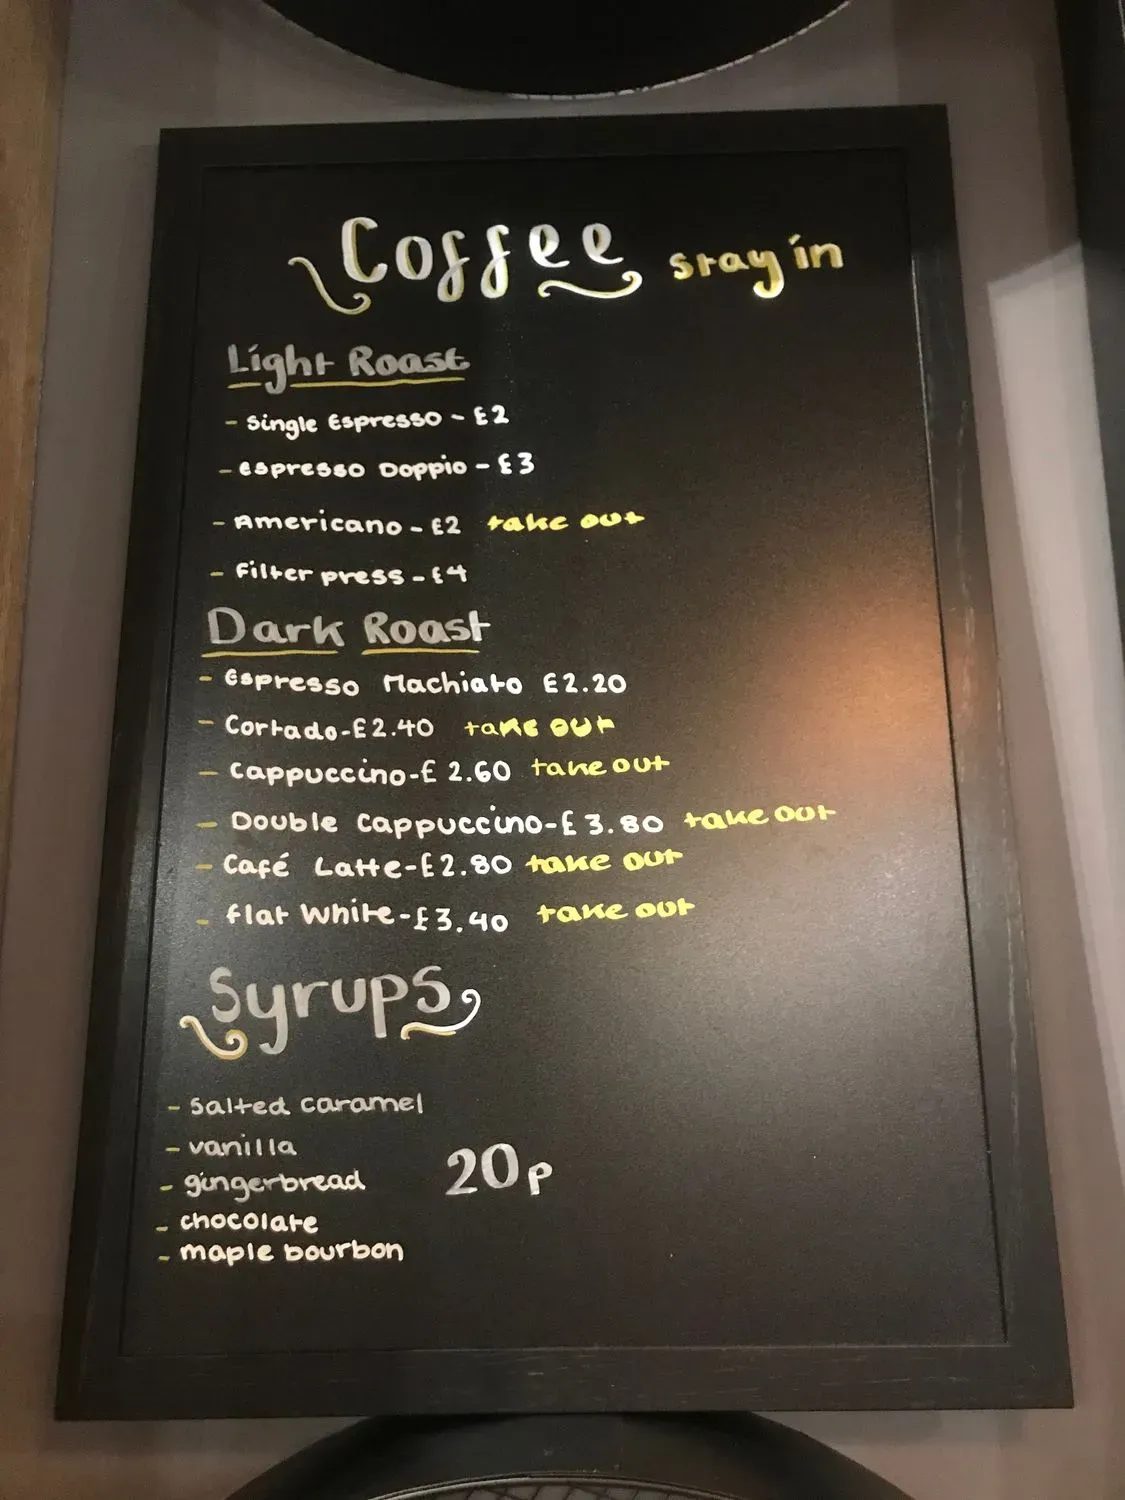 Coffee stay in
Light Roast
- Single Espresso - £2
- Espresso Doppio - £3
- Americano - £2 take out
- Filter press - £4
Dark Roast
- Espresso Machiato £2.20
- Cortado - £2.40 take out
- Cappuccino - £ 2.60 take out
- Double Cappuccino - £ 3.80 take out
- Café Latte - £2.80 take out
- flat White - £3.40 take out
Syrups
- Salted caramel
- vanilla
- gingerbread 20p
- chocolate
- maple bourbon